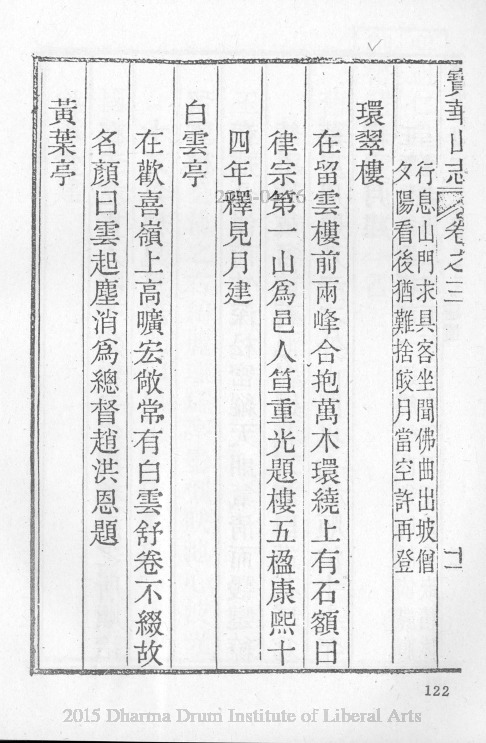 寶華山志 卷之三 十一
行息山門求具客坐聞佛曲出坡僧
夕陽看後猶難捨皎月當空許再登
環翠樓
在留雲樓前兩峰合抱萬木環繞上有石額曰
律宗第一山爲邑人笪重光題樓五楹康熙十
四年釋見月建
白雲亭
在歡喜嶺上高曠宏敞常有白雲舒卷不綴故
名顏曰雲起塵消爲總督趙洪恩題
黃葉亭
122
2015 Dharma Drum Institute of Liberal Arts